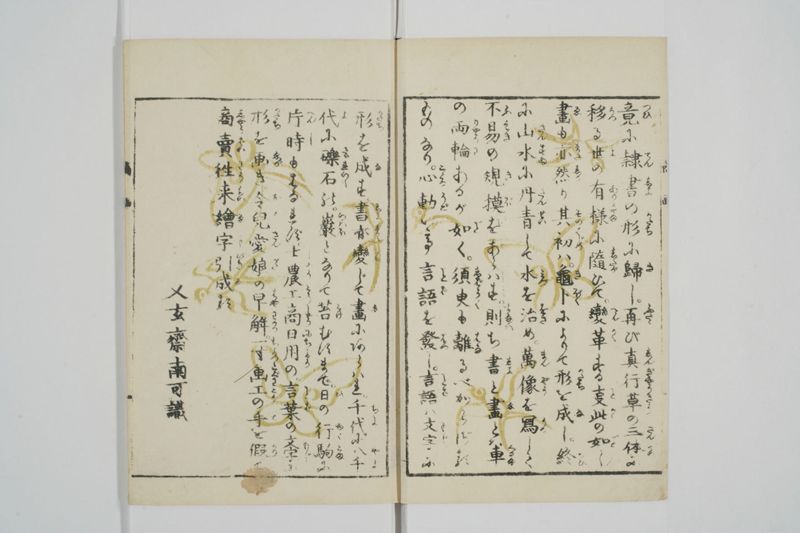 意に隷書の形に歸し再び真行草の三体に
移る世の有様に隨ひて變革する支此の如し
畫も亦然り其初ハ龜卜によりて形を成し終
に山水に丹青して水を治め萬像を寫して
不易の規摸をあらハす則ち書と畫とハ車
の両輪あるが如く須臾も離るべからざる
ものなり心動いて言語を發し言語ハ文字に
形を成す書亦變じて畫に千代に八千
代に礫石の巖となりて苔むすまで日の行駒の
片時も士農工商日用の言葉の文字に
形を画き令兒愛娘の早解一寸画工の手を假て
商賣徃来繪字引成
乂玄齋南可識